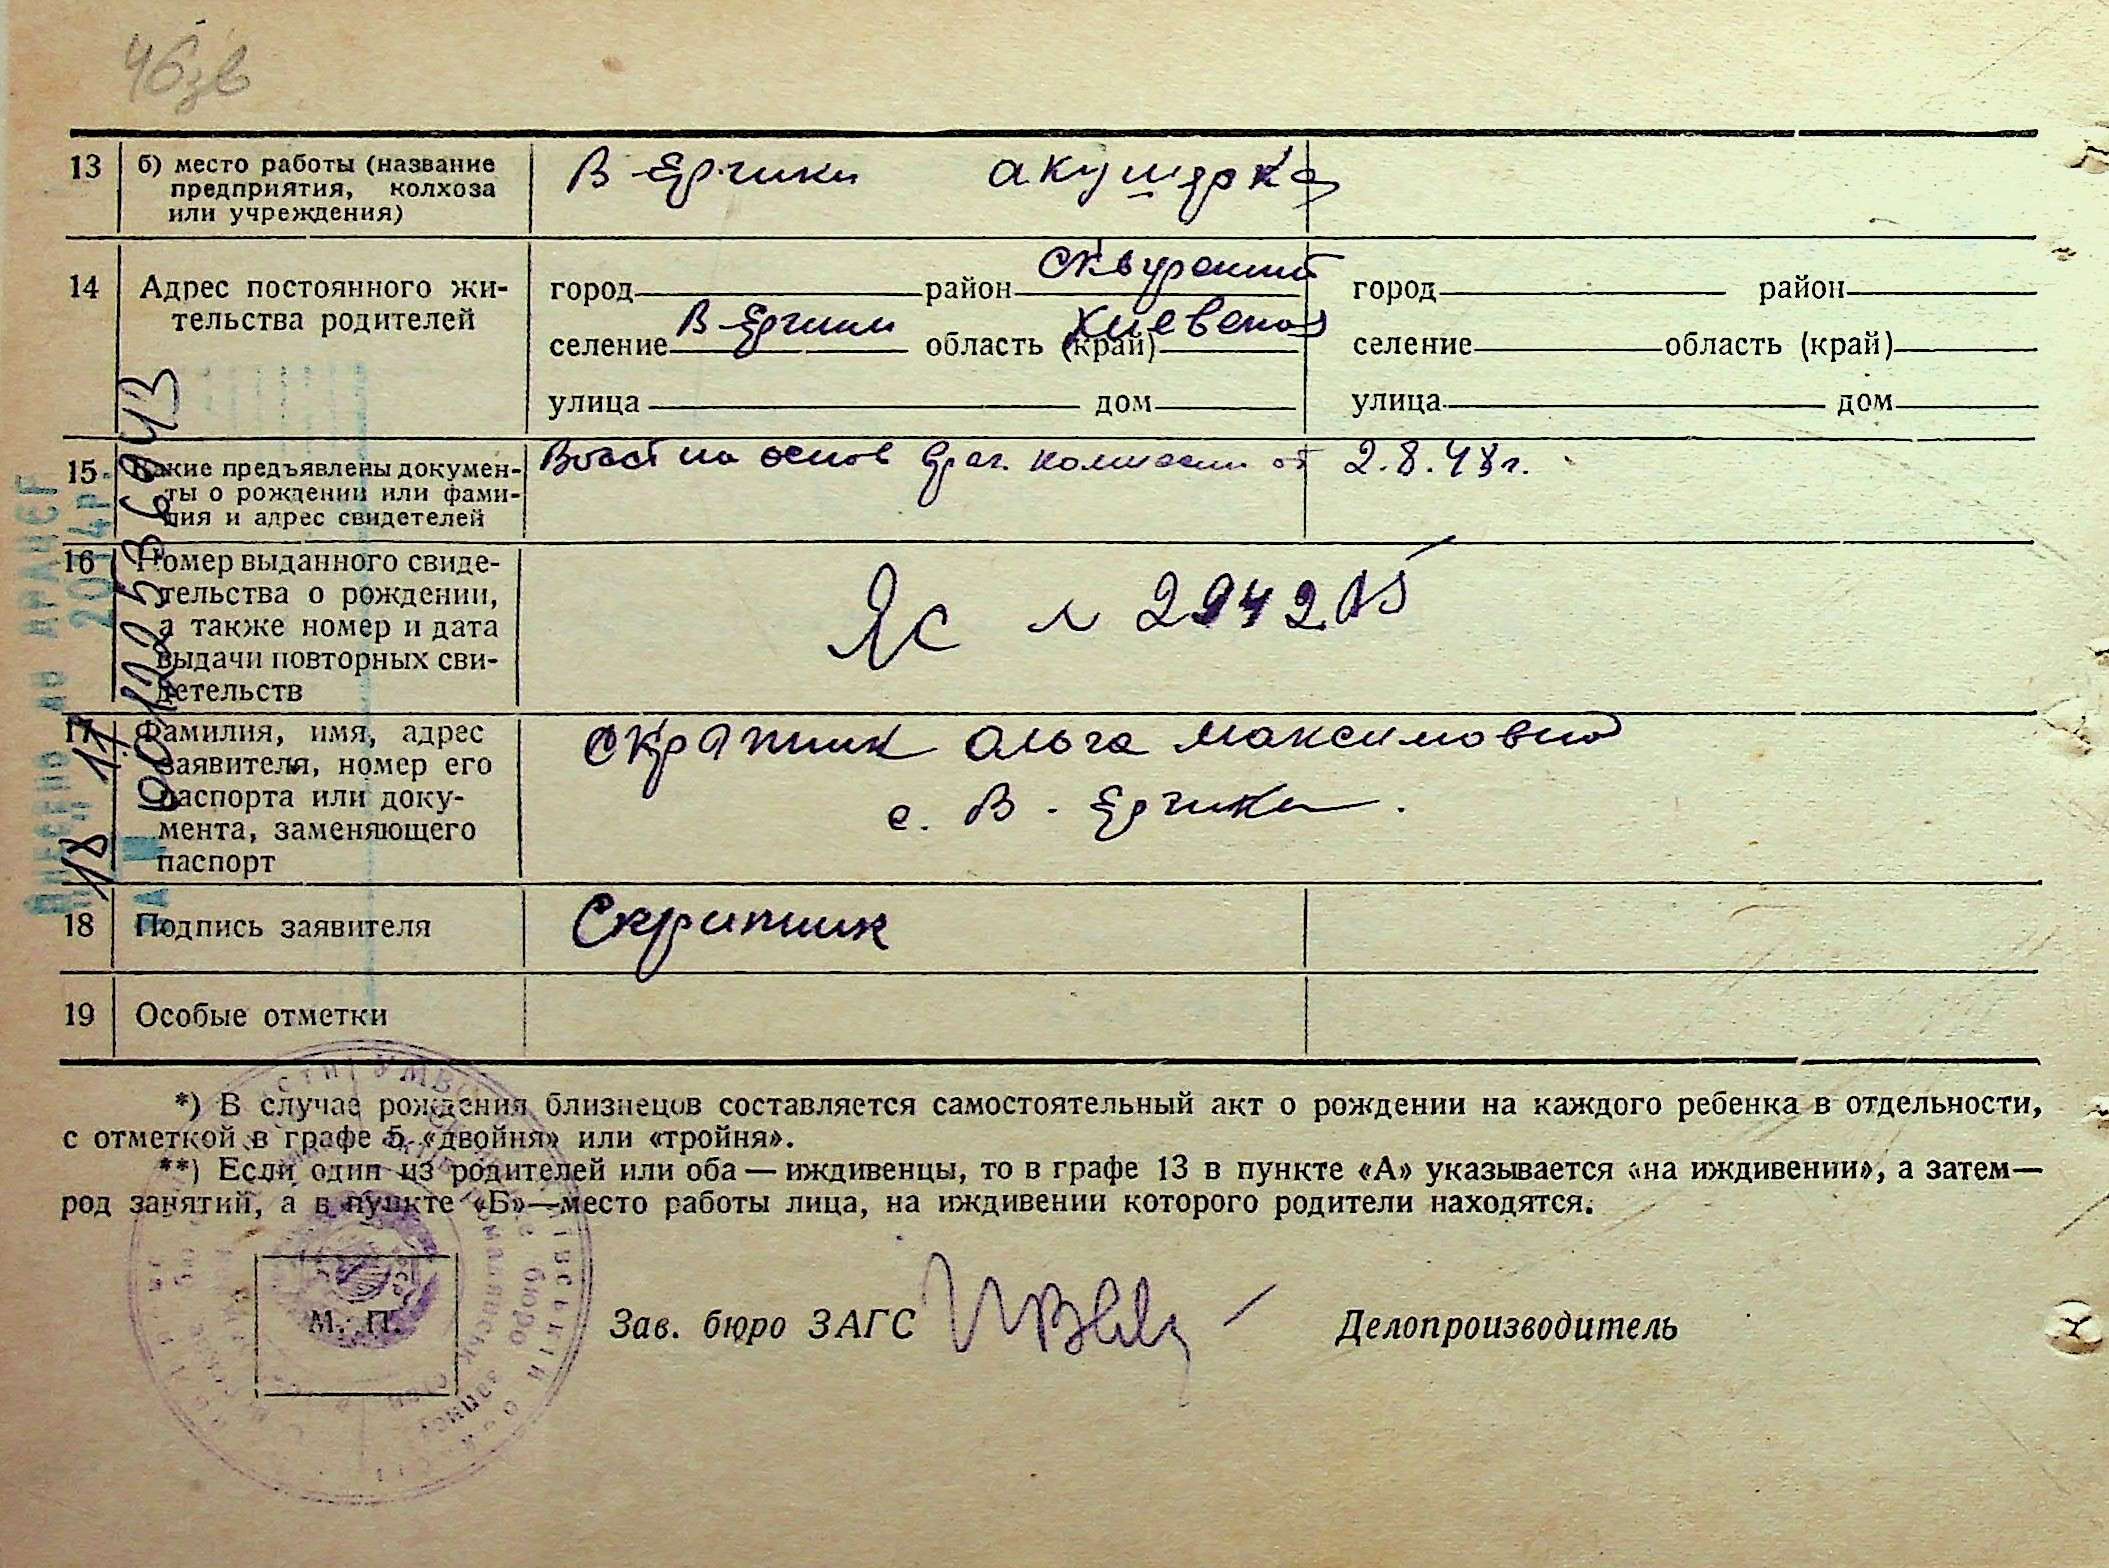 46зв
13 б) место работы (название В-Ерчики акушерка
предприятия, колхоза
или учреждения)
Сквирский
14 Адрес постоянного жи- город район город район
тельства родителей В-Ерчики Киевская
селение область (край) селение область (край)
улица дом улица дом
15 Какие предъявлены докумен- Восст на основ врач. комиссии от 2.8.48г.
ты о рождении или фами-
лия и адрес свидетелей
16 Номер выданного свиде-
тельства о рождении, ЯС
а также номер и дата
выдачи повторных сви-
детельств
17 Фамилия, имя, адрес Скрипник Ольга Максимовна
заявителя, номер его
паспорта или доку- с. В-Ерчики.
мента, заменяющего
паспорт
18 Подпись заявителя Скрипник
19 Особые отметки
*) В случае рождения близнецов составляется самостоятельный акт о рождении на каждого ребенка в отдельности,
с отметкой в графе 5 «двойня» или «тройня».
**) Если один из родителей или оба — иждивенцы, то в графе 13 в пункте «А» указывается «на иждивении», а затем—
род занятий, а в пункте «Б»—место работы лица, на иждивении которого родители находятся.
М. П. Зав. бюро ЗАГС Делопроизводитель